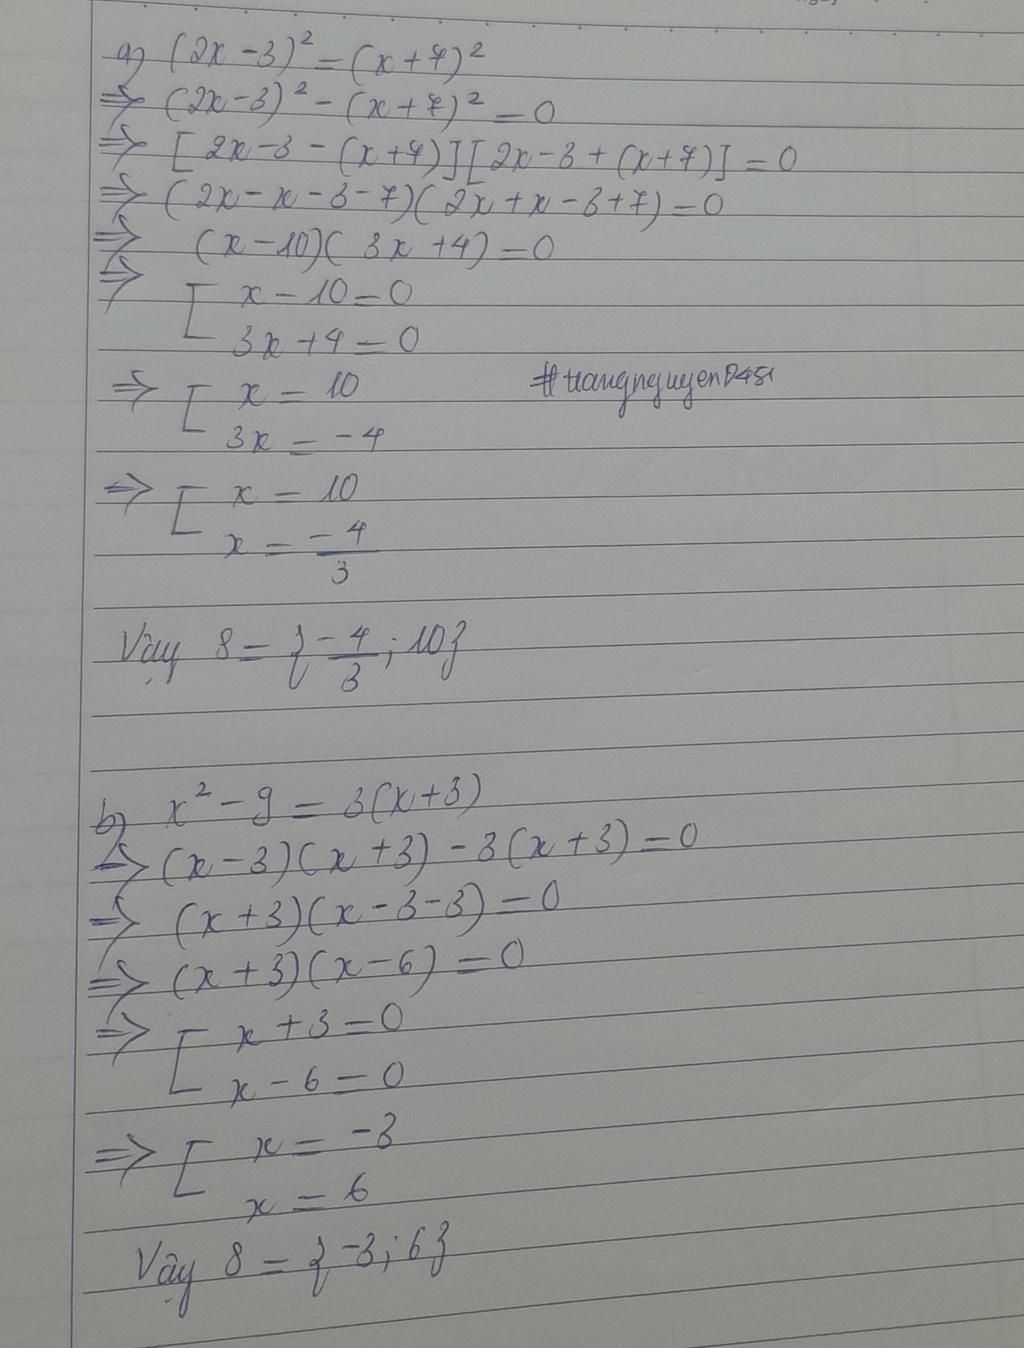 a) (2x - 3)² = (x + 7)²
=> (2x - 3)² - (x + 7)² = 0
=> [2x - 3 - (x + 7)][2x - 3 + (x + 7)] = 0
=> (2x - x - 3 - 7)(2x + x - 3 + 7) = 0
=> (x - 10)(3x + 4) = 0
=> [ x - 10 = 0
3x + 4 = 0
=> [ x = 10
3x = -4
#trangnguyen0451
=> [ x = 10
x = -4/3
Vậy S = {-4/3; 10}
b) x² - 9 = 3(x + 3)
=> (x - 3)(x + 3) - 3(x + 3) = 0
=> (x + 3)(x - 3 - 3) = 0
=> (x + 3)(x - 6) = 0
=> [ x + 3 = 0
x - 6 = 0
=> [ x = -3
x = 6
Vậy S = {-3; 6}